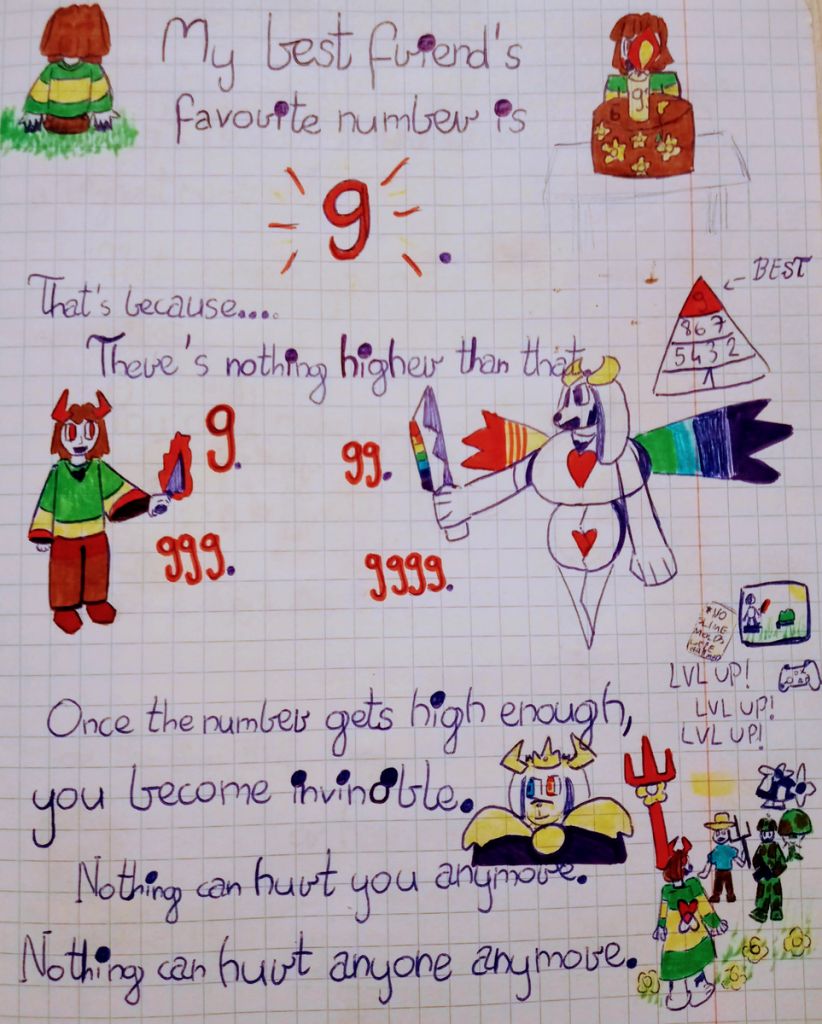 My best friend's
favourite number is
9
9.
BEST
9
8 6 7
5 4 3 2
1
That's because....
There's nothing higher than that.
9.
99.
999.
9999.
*NO
SLIME
MOLDS
WERE
HARMED
LVL UP!
LVL UP!
LVL UP!
Once the number gets high enough,
you become invincible.
Nothing can hurt you anymore.
Nothing can hurt anyone anymore.